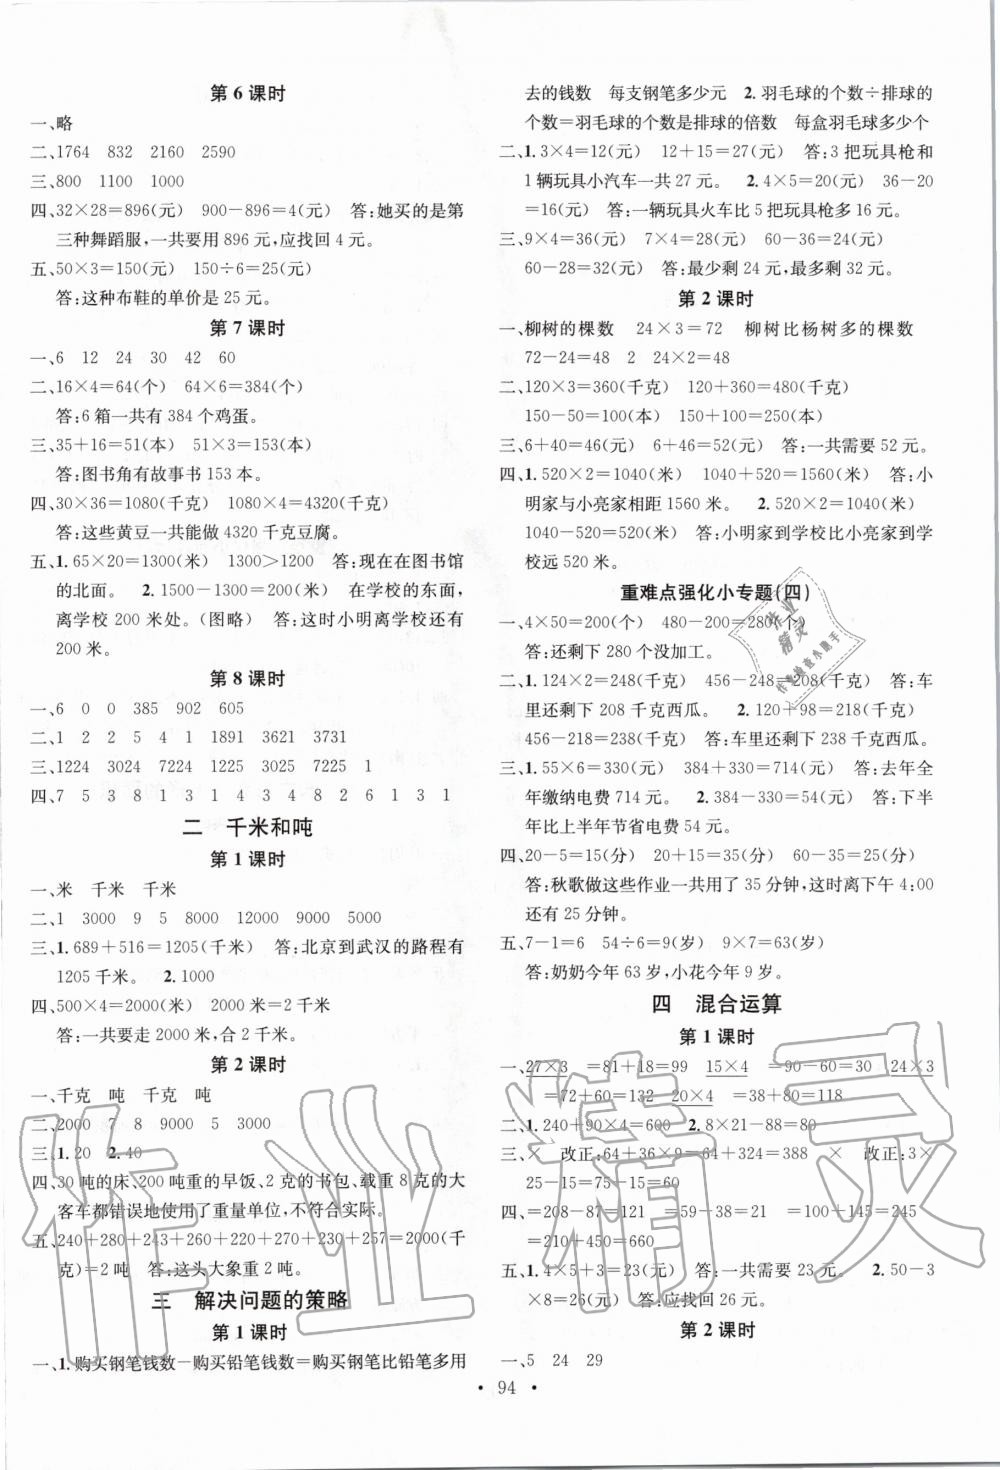 第 6 课时
一、略
二、1764 832 2160 2590
三、800 1100 1000
四、32×28=896(元) 900-896=4(元) 答:她买的是第
三种舞蹈服,一共要用 896 元,应找回 4 元。
五、50×3=150(元) 150÷6=25(元)
答:这种布鞋的单价是 25 元。
第 7 课时
一、6 12 24 30 42 60
二、16×4=64(个) 64×6=384(个)
答:6 箱一共有 384 个鸡蛋。
三、35+16=51(本) 51×3=153(本)
答:图书角有故事书 153 本。
四、30×36=1080(千克) 1080×4=4320(千克)
答:这些黄豆一共能做 4320 千克豆腐。
五、1. 65×20=1300(米) 1300>1200 答:现在在图书馆
的北面。 2. 1500-1300=200(米) 在学校的东面,
离学校 200 米处。(图略) 答:这时小明离学校还有
200 米。
第 8 课时
一、6 0 0 385 902 605
二、1 2 2 5 4 1 1891 3621 3731
三、1224 3024 7224 1225 3025 7225 1
四、7 5 3 8 1 3 1 4 3 4 8 2 6 1 3 1
二 千米和吨
第 1 课时
一、米 千米 千米
二、1 3000 9 5 8000 12000 9000 5000
三、1. 689+516=1205(千米) 答:北京到武汉的路程有
1205 千米。 2. 1000
四、500×4=2000(米) 2000米=2千米
答:一共要走 2000 米,合 2 千米。
第 2 课时
一、千克 吨 千克 吨
二、2000 7 8 9000 5 3000
三、1. 20 2. 40
四、30 吨的床、200 吨重的早饭、2 克的书包、载重 8 克的大
客车都错误地使用了重量单位,不符合实际。
五、240+280+243+260+230+270+220+257=2000(千
克)=2 吨 答:这头大象重 2 吨。
三 解决问题的策略
第 1 课时
一、1. 购买钢笔钱数-购买铅笔钱数=购买钢笔比铅笔多用
去的钱数 每支钢笔多少元 2. 羽毛球的个数÷排球的
个数=羽毛球的个数是排球的倍数 每盒羽毛球多少个
二、1. 3×4=12(元) 12+15=27(元) 答:3 把玩具枪和
1 辆玩具小汽车一共 27 元。 2. 4×5=20(元) 36-20
=16(元) 答:一辆玩具火车比 5 把玩具枪多 16 元。
三、9×4=36(元) 7×4=28(元) 60-36=24(元)
60-28=32(元) 答:最少剩 24 元,最多剩 32 元。
第 2 课时
一、柳树的棵数 24×3=72 柳树比杨树多的棵数
72-24=48 2 24×2=48
二、120×3=360(千克) 120+360=480(千克)
150-50=100(本) 150+100=250(本)
三、6+40=46(元) 6+46=52(元) 答:一共需要 52 元。
四、1. 520×2=1040(米) 1040+520=1560(米) 答:小
明家与小亮家相距 1560 米。 2. 520×2=1040(米)
1040-520=520(米) 答:小明家到学校比小亮家到学
校远 520 米。
重难点强化小专题(四)
一、4×50=200(个) 480-200=280(个)
答:还剩下 280 个没加工。
二、1. 124×2=248(千克) 456-248=208(千克) 答:车
里还剩下 208 千克西瓜。 2. 120+98=218(千克)
456-218=238(千克) 答:车里还剩下 238 千克西瓜。
三、1. 55×6=330(元) 384+330=714(元) 答:去年全
年缴纳电费 714 元。 2. 384-330=54(元) 答:下半
年比上半年节省电费 54 元。
四、20-5=15(分) 20+15=35(分) 60-35=25(分)
答:秋歌做这些作业一共用了 35 分钟,这时离下午 4:00
还有 25 分钟。
五、7-1=6 54÷6=9(岁) 9×7=63(岁)
答:奶奶今年 63 岁,小花今年 9 岁。
四 混合运算
第 1 课时
一、27×3 =81+18=99 15×4 =90-60=30 24×3
=72+60=132 20×4 =80+38=118
二、1. 240+90×4=600 2. 8×21-88=80
三、× 改正:64+36×9=64+324=388 × 改正:3×
25-15=75-15=60
四、=208-87=121 =59-38=21 =100+145=245
=210+450=660
五、1. 4×5+3=23(元) 答:一共需要 23 元。 2. 50-3
×8=26(元) 答:应找回 26 元。
第 2 课时
一、5 24 29
• 94 •
作业精灵
作业精灵
作业检查小助手